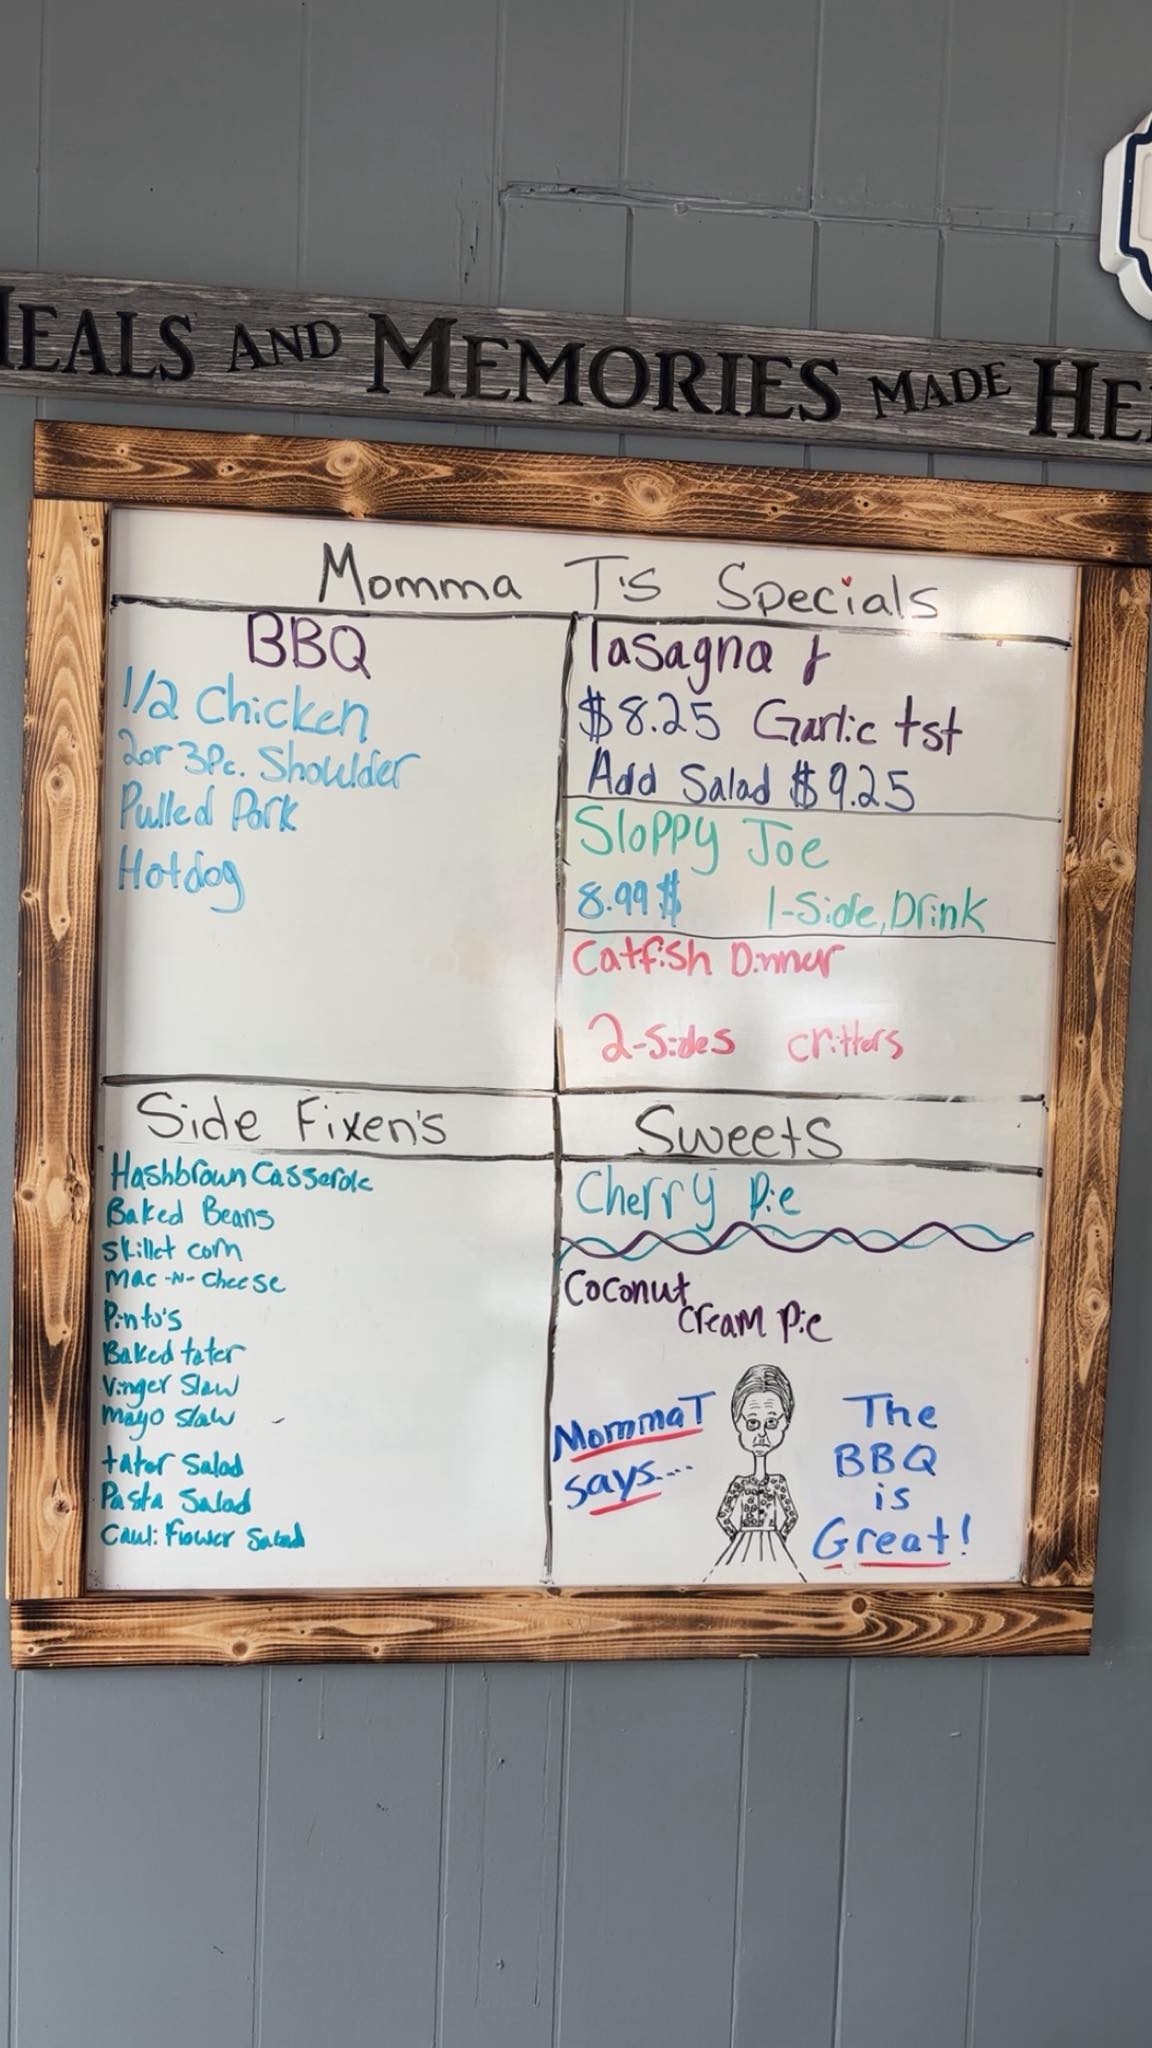 MEALS AND MEMORIES MADE HE
Momma T's Specials
BBQ
1/2 Chicken
2or 3Pc. Shoulder
Pulled Pork
Hotdog
lasagna &
$8.25 Garlic tst
Add Salad $9.25
Sloppy Joe
8.99$ 1-Side, Drink
Catfish Dinnur
2-sides critters
Side Fixen's
Hashbrown Casserole
Baked Beans
skillet corn
Mac -N- Cheese
Pinto's
Baked tater
Vinger Slaw
mayo slaw
tator Salad
Pasta Salad
Cauliflower Salad
Sweets
Cherry Pie
Coconut
Cream Pie
MommaT
says...
The
BBQ
is
Great!